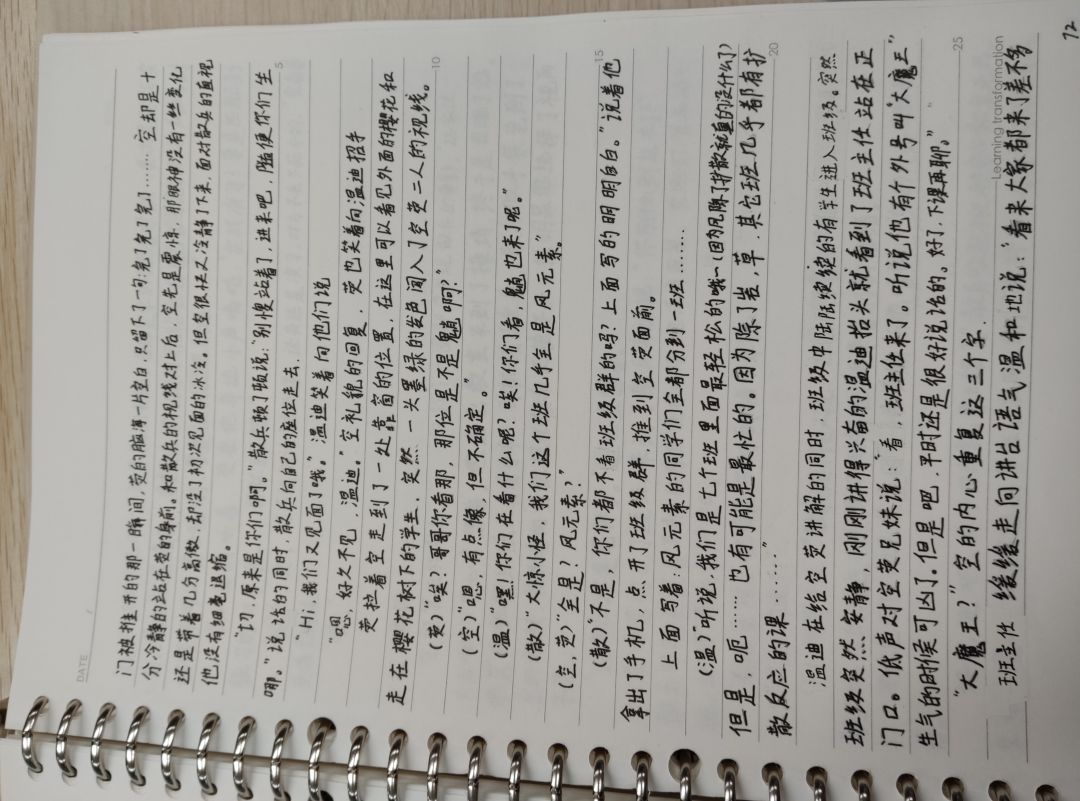 DATE
门被推开的那一瞬间,荧的脑海一片空白,只留下了一句:完了完了完了……… 空却是十
分冷静的站在荧的身前。和散兵的视线对上后,空先是震惊,那眼神没有一丝变化
还是带着几分高傲,却没了初次见面的冰冷。但空很快又冷静了下来,面对散兵的直视
他没有细毫退缩。
"切,原来是你们啊。"散兵顿了顿说,"别傻站着了,进来吧,随便你们坐
哪。"说话的同时,散兵向自己的座位走去.
5
"Hi,我们又见面了哦。"温迪笑着向他们说
"嗯,好久不见,温迪。"空礼貌的回复,荧也笑着向温迪招手
荧拉着空走到了一处靠窗的位置,在这里可以看见外面的樱花和
走在樱花树下的学生,突然,一头墨绿的发色闯入了空荧二人的视线。
10
(荧)"唉?哥哥你看那,那位是不是魈啊?"
(空)"嗯,有点像,但不确定。"
(温)"嘿!你们在看什么呢?唉!你们看,魈也来了呢。"
(散)"大惊小怪,我们这个班几乎全是风元素。"
(空、荧)"全是?风元素?"
(散)"不是,你们都不看班级群的吗?上面写的明明白白。"说着他
15
拿出了手机,点开了班级群,推到空荧面前。
上面写着:风元素的同学们全都分到一班……
(温)"听说,我们是七个班里面最轻松的哦~(因为风除了扩散就真的没什么了)
但是,呃……也有可能是最忙的。因为除了岩,草,其它班几乎都有扩
20
散反应的课……"
温迪在给空荧讲解的同时,班级中陆陆续续的有学生进入班级。突然
班级突然安静,刚刚讲得兴奋的温迪抬头就看到了班主任站在正
门口。低声对空荧兄妹说:"看,班主任来了。听说他有个外号叫"大魔王"
生气的时候可凶了。但是吧,平时还是很好说话的。好了,下课再聊。"
"大魔王?"空的内心重复这三个字.
25
班主任 缓缓走向讲台语气温和地说:"看来大家都来了差不多
Learning transformation
72